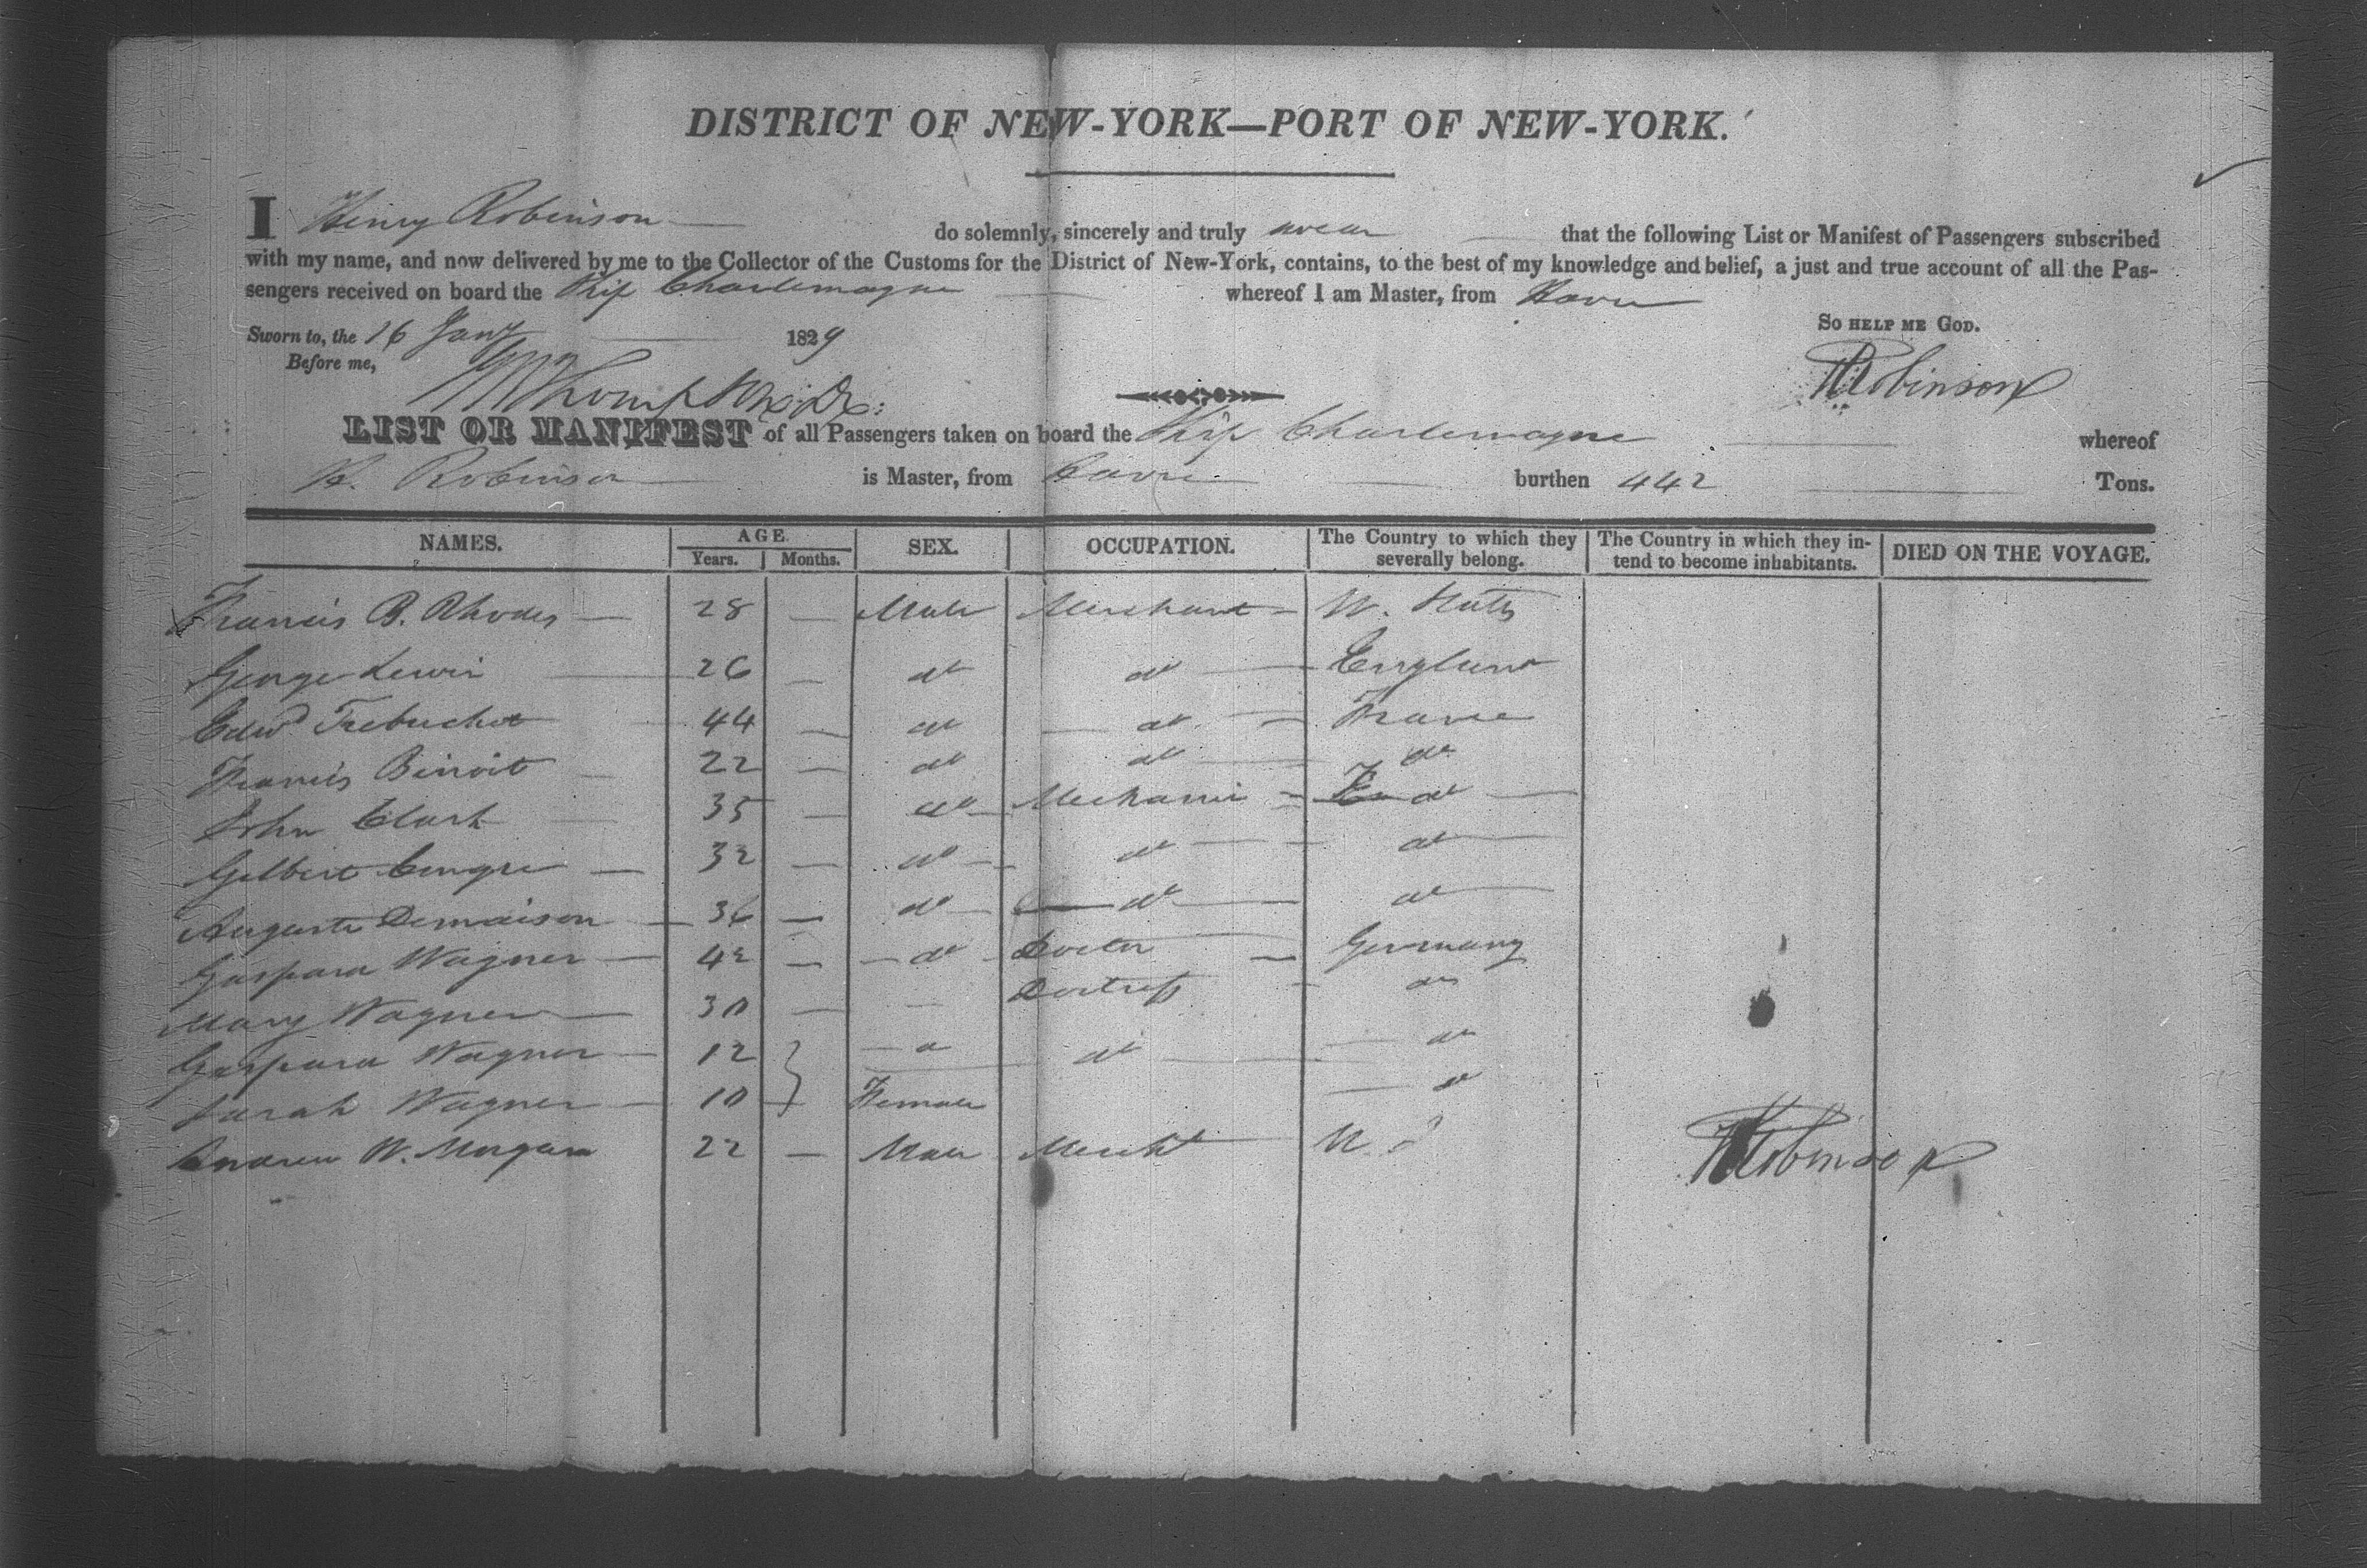 DISTRICT OF NEW-YORK—PORT OF NEW-YORK.
I Henry Robinson do solemnly, sincerely and truly swear that the following List or Manifest of Passengers subscribed
with my name, and now delivered by me to the Collector of the Customs for the District of New-York, contains, to the best of my knowledge and belief, a just and true account of all the Pas-
sengers received on board the Ship Charlemagne whereof I am Master, from Havre
So help me God.
Sworn to, the 16 Jany 1829
Before me,
HRobinson
LIST OR MANIFEST of all Passengers taken on board the Ship Charlemagne whereof
H. Robinson is Master, from Havre burthen 442 Tons.
NAMES. AGE. Years. Months. SEX. OCCUPATION. The Country to which they severally belong. The Country in which they in-tend to become inhabitants. DIED ON THE VOYAGE.
Francis B. Rhodes 28 — Male Merchant U. States
George Lewis 26 — do do England
Edwd Trebuchet 44 — do do France
Francis Benoit 22 — do do do
John Clark 35 — do Mechanic do
Gilbert 32 — do do do
Auguste Demaison 36 — do do do
Gaspard Wagner 42 — do Doctor Germany
Mary Wagner 30 — Doctress do
Gaspard Wagner 12 do do
Sarah Wagner 10 Female do
Andrew W. Morgan 22 — Male Mercht U. S
HRobinson